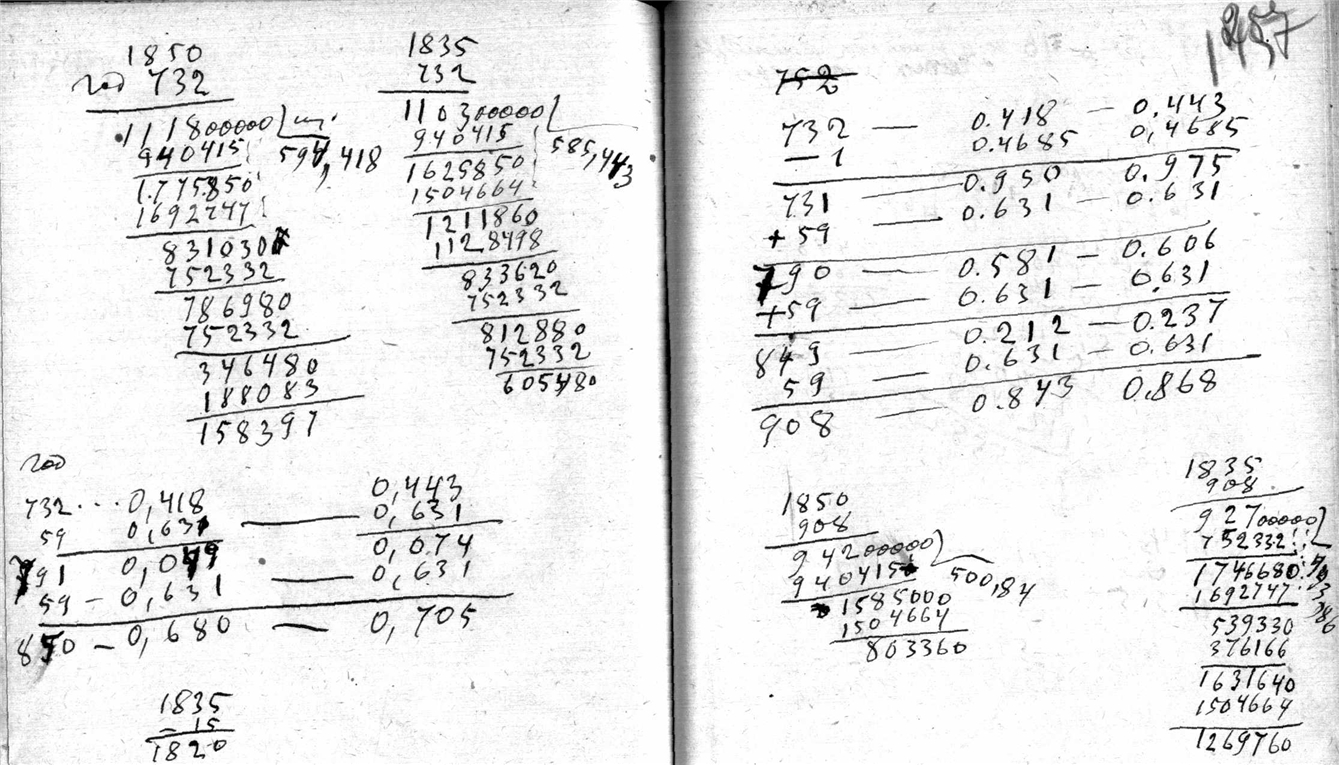 1850
год 732
111800000
940415
594,418
1775850
1692747
831030
752332
786980
752332
346480
188083
158397
1835
732
110300000
940415
585,443
1625850
1504664
1211860
1128498
833620
752332
812880
752332
605480
год
732 ... 0,418 0,443
59 0,631 — 0,631
791 0,049 0,074
59 – 0,631 — 0,631
850 – 0,680 — 0,705
1835
– 15
1820
752
732 — 0.418 — 0.443
– 1 0.4685 0,4685
731 — 0.950 0.975
+ 59 — 0.631 — 0.631
790 — 0.581 — 0.606
+59 — 0.631 — 0.631
849 — 0.212 — 0.237
59 — 0.631 — 0.631
908 — 0.843 0.868
1850
908
94200000
940415
500,84
1585000
1504664
803360
1835
908
92700000
752332
1746680
1692747
539330
376166
1631640
1504664
1269760